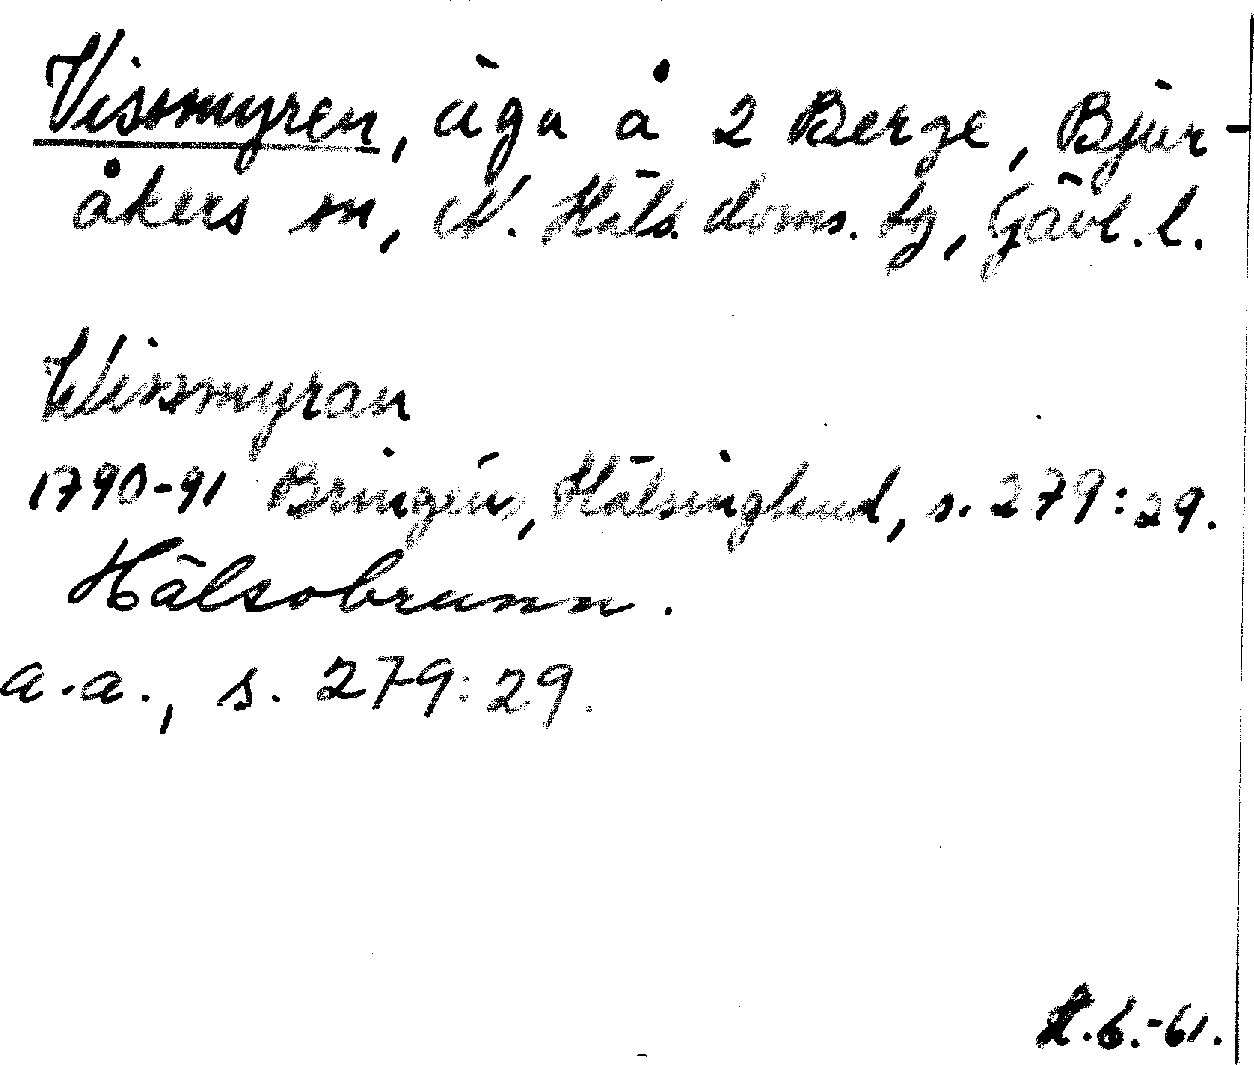 Vissmyren, äga å 2 Berge, Bjur-
åkers sn, N. Häls. doms. tg, Gävl. l.
Wissmyran
1790-91 Bringéus, Hälsingland, s. 279:29.
Hälsobrunn.
a.a., s. 279:29.
L.B.-61.